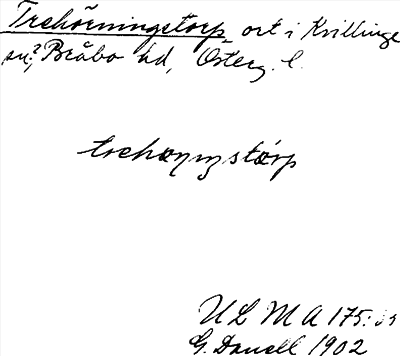 Trehörningstorp, ort i Kvillinge
sn?, Bråbo hd, Österg. l.
trehœrŋıŋstǿrp
ULMA 175:
G. Danell 1902